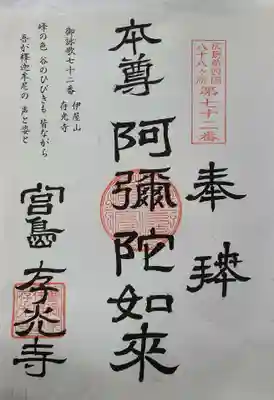 広島新四国
八十八ヶ所
第七十二番
奉拝
本尊 阿彌陀如來
御詠歌七十二番 伊屋山
存光寺
峰の色 谷のひびきも 皆ながら
吾が釋迦牟尼の 声と姿と
宮島 存光寺